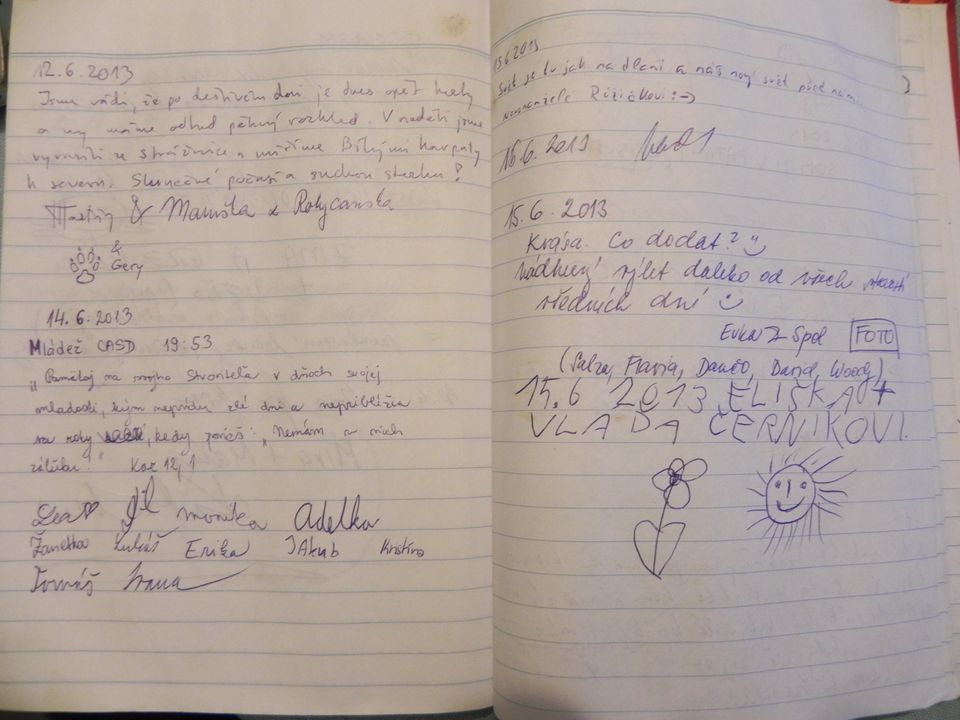 12.6.2013
Jsme rádi, že po deštivém dni je dnes opět hezky
a my máme odtud pěkný rozhled. V neděli jsme
vyrazili ze Strážnice a míříme Bílými Karpaty
k severu. Slunečné počasí a suchou stezku!
Martin & Maruška z Rokycanska
& Gery
14.6.2013
Mládež CASD 19:53
„Pamätaj na svojho Stvoriteľa v dňoch svojej
mladosti, kým neprídu zlé dni a nepriblížia
sa roky, kedy povieš: „Nemám v nich
záľubu." Kaz 12,1
Lea
Monika Adelka
Žanetka Lukáš Erika JAkub Kristína
Tomáš Ivana
15.6.2013
Svět je tu jak na dlani a náš nový svět před námi.
Novomanželé Růžičkovi :-)
16.6.2013
15.6.2013
Krása. Co dodat?
Nádherný výlet daleko od všech starostí
všedních dní
Evka & Spol FOTO
(Flavia, Dančo, David, Woody)
15.6 2013 ELIŠKA +
VLAĎA ČERNÍKOVI.